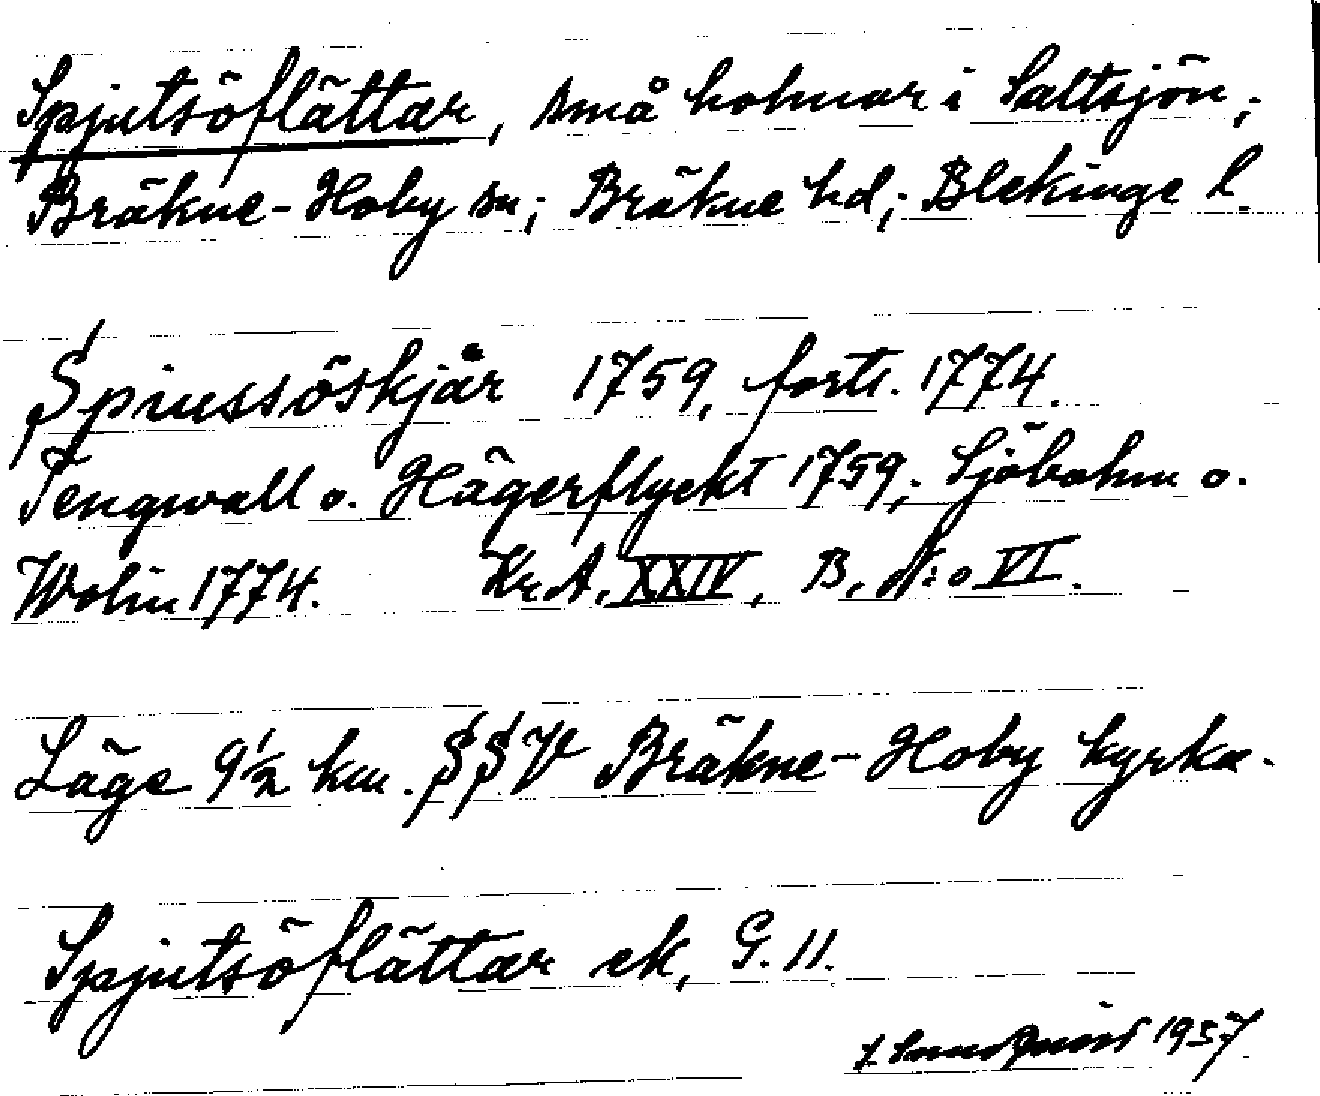 Spjutsöflättar, små holmar i Saltsjön;
Bräkne-Hoby sn; Bräkne hd; Blekinge l.
Spiussöskjär 1759, forts. 1774.
Tengwall o. Hägerflyckt 1759; Sjöbohm o.
Wolin 1774. Kr. A. XXIV, B, N:o VI.
Läge 9½ km. SSV Bräkne-Hoby kyrka.
Spjutsöflättar ek, G. 11.
1937